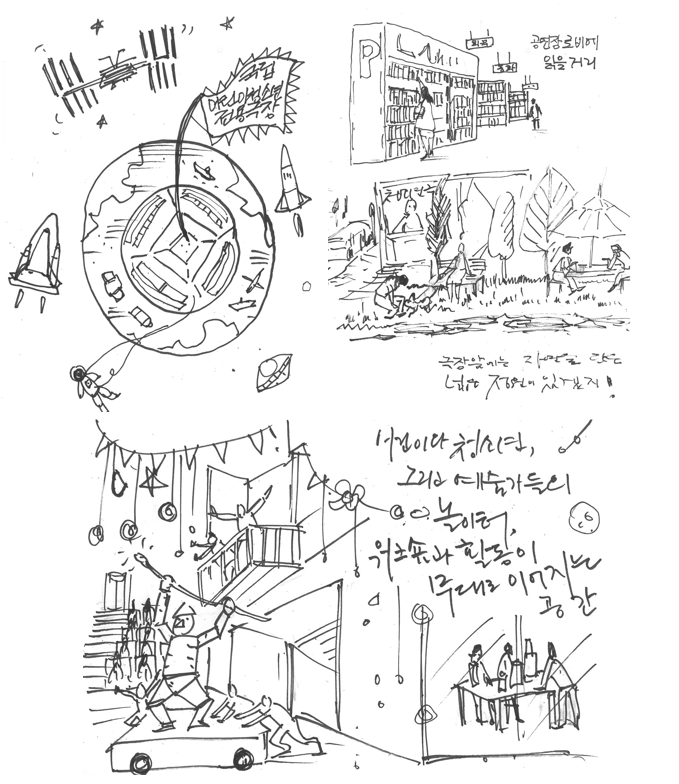 국립
어린이청소년
전용극장
P
희곡
동화
공연장로비에
읽을거리
극장앞에는 자연으로 만든
넓은 정원이 있겠지!
어린이와 청소년,
그리고 예술가들의
놀이터,
워크숍과 활동이
무대로 이어지는
공간